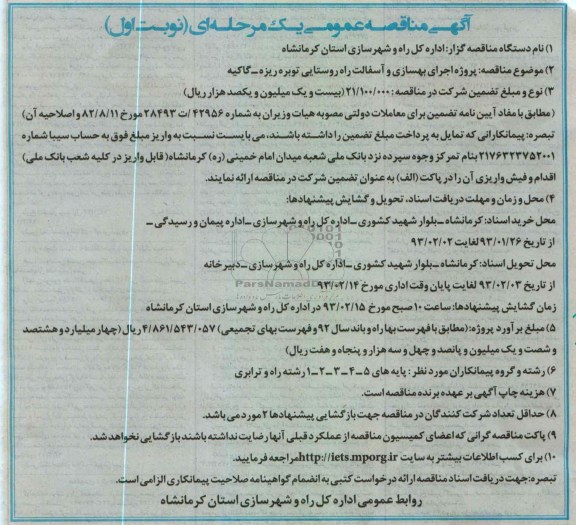 آگهی مناقصه عمومی یک مرحله‌ای (نوبت اول)
۱) نام دستگاه مناقصه گزار: اداره کل راه و شهرسازی استان کرمانشاه
۲) موضوع مناقصه: پروژه اجرای بهسازی و آسفالت راه روستایی توبره ریزه ـ گاکیه
۳) نوع و مبلغ تضمین شرکت در مناقصه: ۲۱/۱۰۰/۰۰۰ (بیست و یک میلیون و یکصد هزار ریال)
(مطابق با مفاد آیین نامه تضمین برای معاملات دولتی مصوبه هیات وزیران به شماره ۴۲۹۵۶ /ت ۲۸۴۹۳ مورخ ۸۲/۸/۱۱ و اصلاحیه آن)
تبصره: پیمانکارانی که تمایل به پرداخت مبلغ تضمین را داشته باشند، می بایست نسبت به واریز مبلغ فوق به حساب سیبا شماره
۲۱۷۶۳۲۳۷۵۲۰۰۱ بنام تمرکز وجوه سپرده نزد بانک ملی شعبه میدان امام خمینی (ره) کرمانشاه( قابل واریز در کلیه شعب بانک ملی)
اقدام و فیش واریزی آن را در پاکت (الف) به عنوان تضمین شرکت در مناقصه ارائه نمایند.
۴) محل و زمان و مهلت دریافت اسناد، تحویل و گشایش پیشنهادها:
محل خرید اسناد: کرمانشاه ـ بلوار شهید کشوری ـ اداره کل راه و شهرسازی ـ اداره پیمان و رسیدگی ـ
از تاریخ ۹۳/۰۱/۲۶ لغایت ۹۳/۰۲/۰۲
محل تحویل اسناد: کرمانشاه ـ بلوار شهید کشوری ـ اداره کل راه و شهرسازی ـ دبیرخانه
از تاریخ ۹۳/۰۲/۰۳ لغایت پایان وقت اداری مورخ ۹۳/۰۲/۱۴
ParsNamadData
زمان گشایش پیشنهادها: ساعت ۱۰ صبح مورخ ۹۳/۰۲/۱۵ در اداره کل راه و شهرسازی استان کرمانشاه
۵) مبلغ برآورد پروژه: (مطابق با فهرست بها راه و باند سال ۹۲ و فهرست بهای تجمیعی) ۴/۸۶۱/۵۴۳/۰۵۷ ریال (چهار میلیارد و هشتصد
و شصت و یک میلیون و پانصد و چهل و سه هزار و پنجاه و هفت ریال)
۶) رشته و گروه پیمانکاران مورد نظر: پایه های ۵ـ۴ـ۳ـ۲ـ۱ رشته راه و ترابری
۷) هزینه چاپ آگهی بر عهده برنده مناقصه است.
۸) حداقل تعداد شرکت کنندگان در مناقصه جهت بازگشایی پیشنهادها ۲ مورد می باشد.
۹) پاکت مناقصه گرانی که اعضای کمیسیون مناقصه از عملکرد قبلی آنها رضایت نداشته باشند بازگشایی نخواهد شد.
۱۰) برای کسب اطلاعات بیشتر به سایت http://iets.mporg.ir مراجعه فرمایید.
تبصره: جهت دریافت اسناد مناقصه ارائه درخواست کتبی به انضمام گواهینامه صلاحیت پیمانکاری الزامی است.
روابط عمومی اداره کل راه و شهرسازی استان کرمانشاه